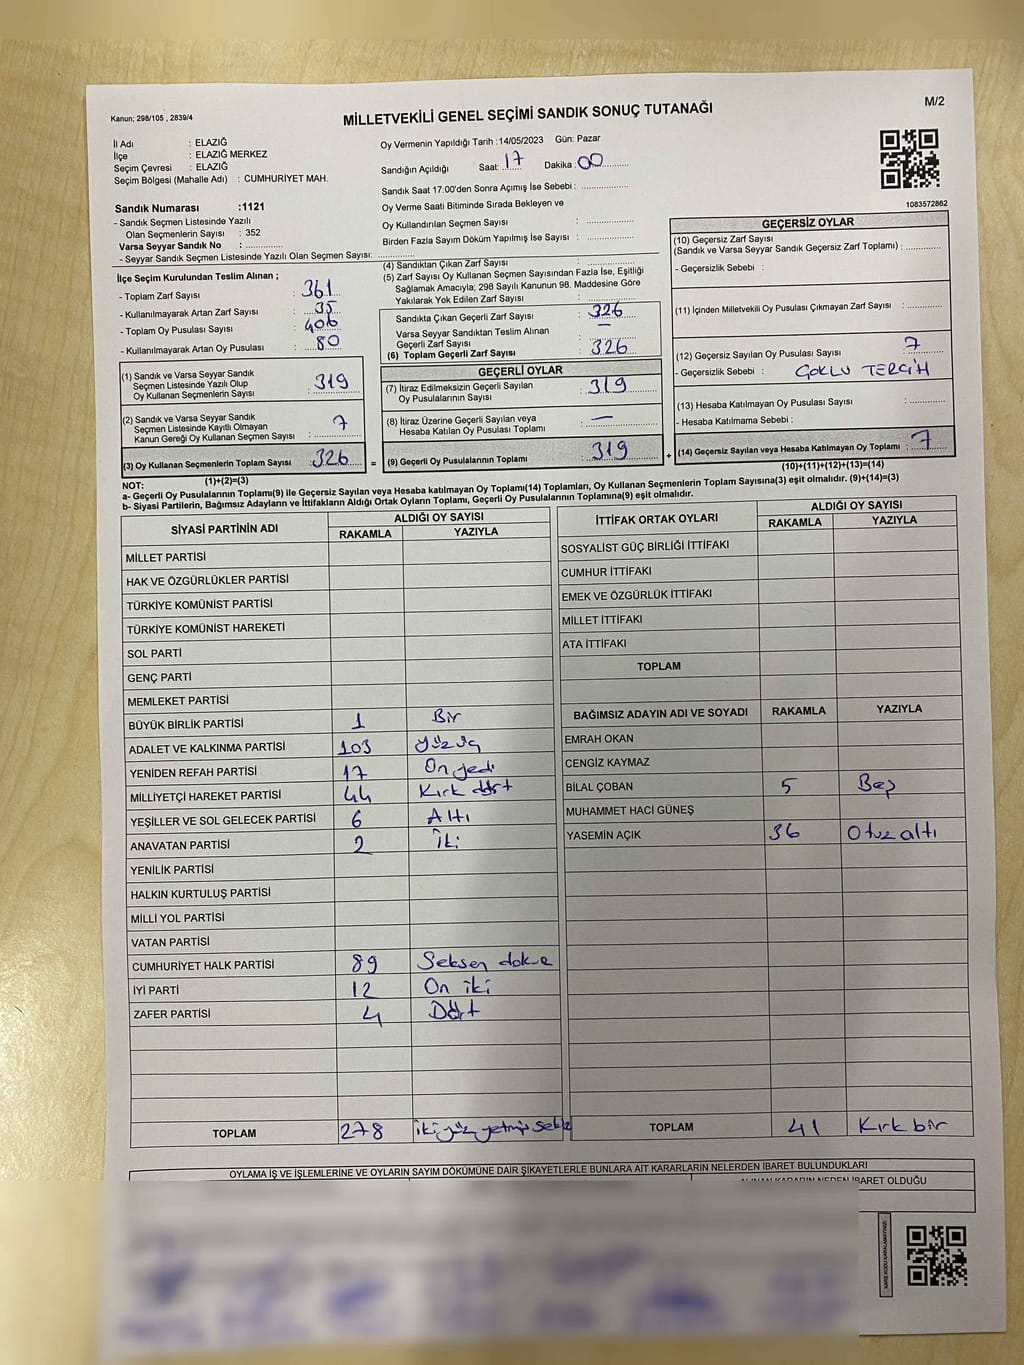 Kanun; 298/105 , 2839/4
MİLLETVEKİLİ GENEL SEÇİMİ SANDIK SONUÇ TUTANAĞI
M/2
İl Adı : ELAZIĞ
İlçe : ELAZIĞ MERKEZ
Seçim Çevresi : ELAZIĞ
Seçim Bölgesi (Mahalle Adı) : CUMHURİYET MAH.
Sandık Numarası :1121
- Sandık Seçmen Listesinde Yazılı
Olan Seçmenlerin Sayısı : 352
Varsa Seyyar Sandık No : ..............
- Seyyar Sandık Seçmen Listesinde Yazılı Olan Seçmen Sayısı: ..............
Oy Vermenin Yapıldığı Tarih :14/05/2023 Gün: Pazar
Sandığın Açıldığı Saat: 17 Dakika: 00
Sandık Saat 17:00'den Sonra Açımış İse Sebebi : ..............
Oy Verme Saati Bitiminde Sırada Bekleyen ve
Oy Kullandırılan Seçmen Sayısı : ..............
Birden Fazla Sayım Döküm Yapılmış İse Sayısı : ..............
1083572862
İlçe Seçim Kurulundan Teslim Alınan ;
- Toplam Zarf Sayısı : 361
- Kullanılmayarak Artan Zarf Sayısı : 35
- Toplam Oy Pusulası Sayısı : 406
- Kullanılmayarak Artan Oy Pusulası : 80
(1) Sandık ve Varsa Seyyar Sandık
Seçmen Listesinde Yazılı Olup
Oy Kullanan Seçmenlerin Sayısı : 319
(2) Sandık ve Varsa Seyyar Sandık
Seçmen Listesinde Kayıtlı Olmayan
Kanun Gereği Oy Kullanan Seçmen Sayısı : 7
(3) Oy Kullanan Seçmenlerin Toplam Sayısı : 326 =
(1)+(2)=(3)
(4) Sandıktan Çıkan Zarf Sayısı : ..............
(5) Zarf Sayısı Oy Kullanan Seçmen Sayısından Fazla İse, Eşitliği
Sağlamak Amacıyla; 298 Sayılı Kanunun 98. Maddesine Göre
Yakılarak Yok Edilen Zarf Sayısı : ..............
Sandıkta Çıkan Geçerli Zarf Sayısı : 326
Varsa Seyyar Sandıktan Teslim Alınan
Geçerli Zarf Sayısı : —
(6) Toplam Geçerli Zarf Sayısı : 326
GEÇERLİ OYLAR
(7) İtiraz Edilmeksizin Geçerli Sayılan
Oy Pusulalarının Sayısı : 319
(8) İtiraz Üzerine Geçerli Sayılan veya
Hesaba Katılan Oy Pusulası Toplamı : —
(9) Geçerli Oy Pusulalarının Toplamı : 319 +
GEÇERSİZ OYLAR
(10) Geçersiz Zarf Sayısı
(Sandık ve Varsa Seyyar Sandık Geçersiz Zarf Toplamı) : ..............
- Geçersizlik Sebebi :
(11) İçinden Milletvekili Oy Pusulası Çıkmayan Zarf Sayısı : ..............
(12) Geçersiz Sayılan Oy Pusulası Sayısı : 7
- Geçersizlik Sebebi : ÇOKLU TERCİH
(13) Hesaba Katılmayan Oy Pusulası Sayısı : ..............
- Hesaba Katılmama Sebebi :
(14) Geçersiz Sayılan veya Hesaba Katılmayan Oy Toplamı : 7
(10)+(11)+(12)+(13)=(14)
NOT:
a- Geçerli Oy Pusulalarının Toplamı(9) ile Geçersiz Sayılan veya Hesaba katılmayan Oy Toplamı(14) Toplamları, Oy Kullanan Seçmenlerin Toplam Sayısına(3) eşit olmalıdır. (9)+(14)=(3)
b- Siyasi Partilerin, Bağımsız Adayların ve İttifakların Aldığı Ortak Oyların Toplamı, Geçerli Oy Pusulalarının Toplamına(9) eşit olmalıdır.
SİYASİ PARTİNİN ADI ALDIĞI OY SAYISI
RAKAMLA YAZIYLA
MİLLET PARTİSİ
HAK VE ÖZGÜRLÜKLER PARTİSİ
TÜRKİYE KOMÜNİST PARTİSİ
TÜRKİYE KOMÜNİST HAREKETİ
SOL PARTİ
GENÇ PARTİ
MEMLEKET PARTİSİ
BÜYÜK BİRLİK PARTİSİ 1 Bir
ADALET VE KALKINMA PARTİSİ 103 Yüz üç
YENİDEN REFAH PARTİSİ 17 On yedi
MİLLİYETÇİ HAREKET PARTİSİ 44 Kırk dört
YEŞİLLER VE SOL GELECEK PARTİSİ 6 Altı
ANAVATAN PARTİSİ 2 İki
YENİLİK PARTİSİ
HALKIN KURTULUŞ PARTİSİ
MİLLİ YOL PARTİSİ
VATAN PARTİSİ
CUMHURİYET HALK PARTİSİ 89 Seksen
İYİ PARTİ 12 On iki
ZAFER PARTİSİ 4 Dört
TOPLAM 278 iki yüz yetmiş
İTTİFAK ORTAK OYLARI ALDIĞI OY SAYISI
RAKAMLA YAZIYLA
SOSYALİST GÜÇ BİRLİĞİ İTTİFAKI
CUMHUR İTTİFAKI
EMEK VE ÖZGÜRLÜK İTTİFAKI
MİLLET İTTİFAKI
ATA İTTİFAKI
TOPLAM
BAĞIMSIZ ADAYIN ADI VE SOYADI RAKAMLA YAZIYLA
EMRAH OKAN
CENGİZ KAYMAZ
BİLAL ÇOBAN 5 Beş
MUHAMMET HACİ GÜNEŞ
YASEMİN AÇIK 36 Otuz altı
TOPLAM 41 Kırk bir
OYLAMA İŞ VE İŞLEMLERİNE VE OYLARIN SAYIM DÖKÜMÜNE DAİR ŞİKAYETLERLE BUNLARA AİT KARARLARIN NELERDEN İBARET BULUNDUKLARI
ALINAN KARARIN NEDEN İBARET OLDUĞU
KARE KODU KARALAMAYINIZ!